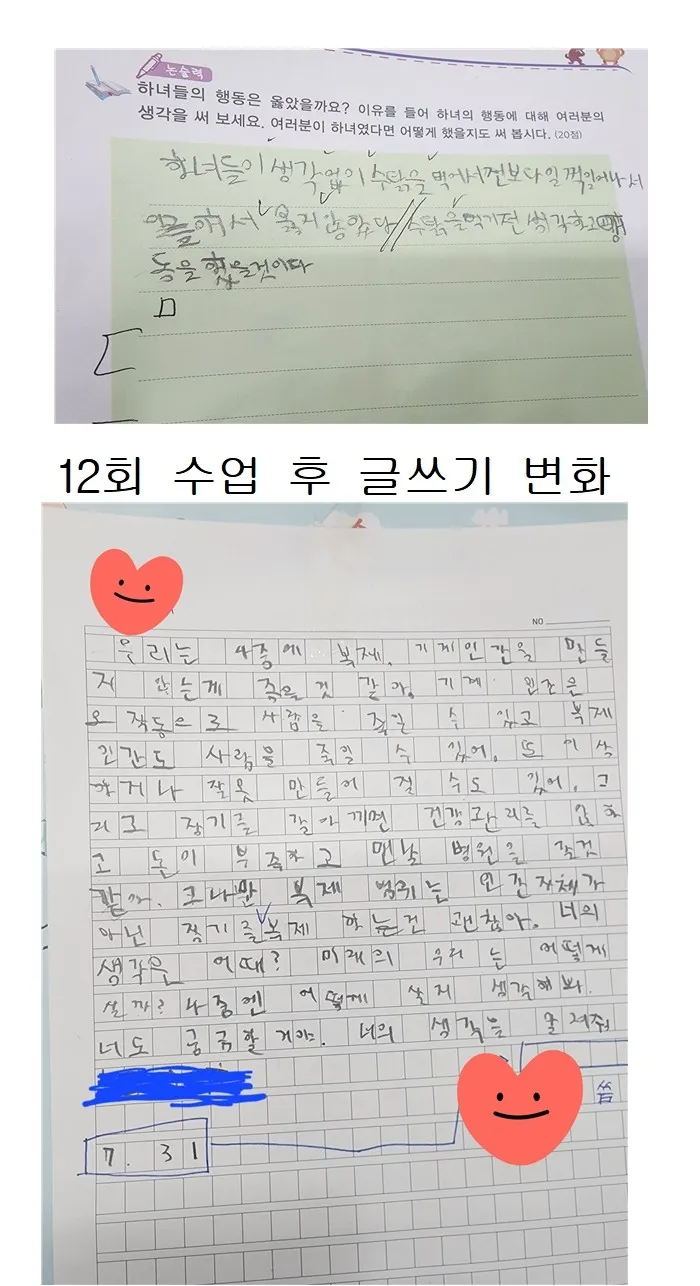 논술력
하녀들의 행동은 옳았을까요? 이유를 들어 하녀의 행동에 대해 여러분의
생각을 써 보세요. 여러분이 하녀였다면 어떻게 했을지도 써 봅시다. (20점)
하녀들이 생각 없이 수탉을 먹에서 전보다 일찍 일어나서
일을 해서 옳지 않았다 수탉을 먹기전 생각하고 행
동을 했을것이다
12회 수업 후 글쓰기 변화
NO
우리는 나중에 복제, 기계인간을 만들
지 않는게 좋을 것 같아. 기계 인조은
오 작동으로 사람을 죽일 수 있고 복제
인간도 사람을 죽일 수 있어. 또 이삭
하거나 잘못 만들어 질 수도 있어. 그
리고 장기를 갈아끼면 건강관리를 안하
고 돈이 부족하고 맨날 병원을 갈것
같아. 그나만 복제 범위는 인간자체가
아닌 장기를 복제 하는건 괜찮아. 너의
생각은 어때? 미래의 우리는 어떻게
살까? 나중엔 어떻게 살지 생각해봐.
너도 궁금할 거야. 너의 생각을 알려줘
씀
7. 31